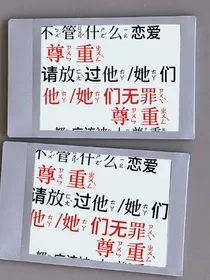 不管什么恋爱
尊重
请放过他/她们
他/她们无罪
尊重
不管什么恋爱
尊重
请放过他/她们
他/她们无罪
尊重